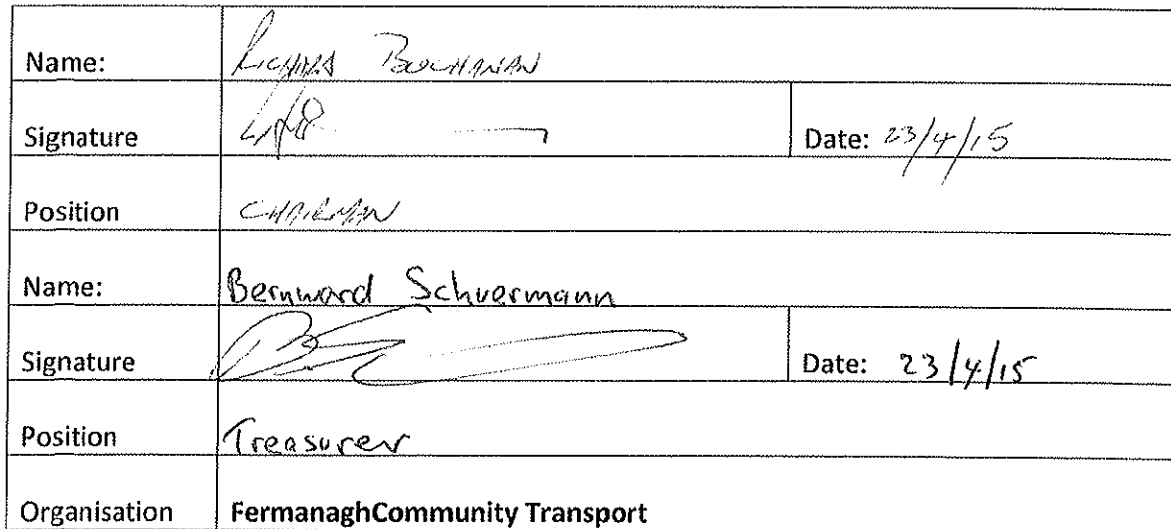 Name: Richard Buchanan
Signature Date: 23/4/15
Position CHAIRMAN
Name: Bernward Schuermann
Signature Date: 23/4/15
Position Treasurer
Organisation FermanaghCommunity Transport